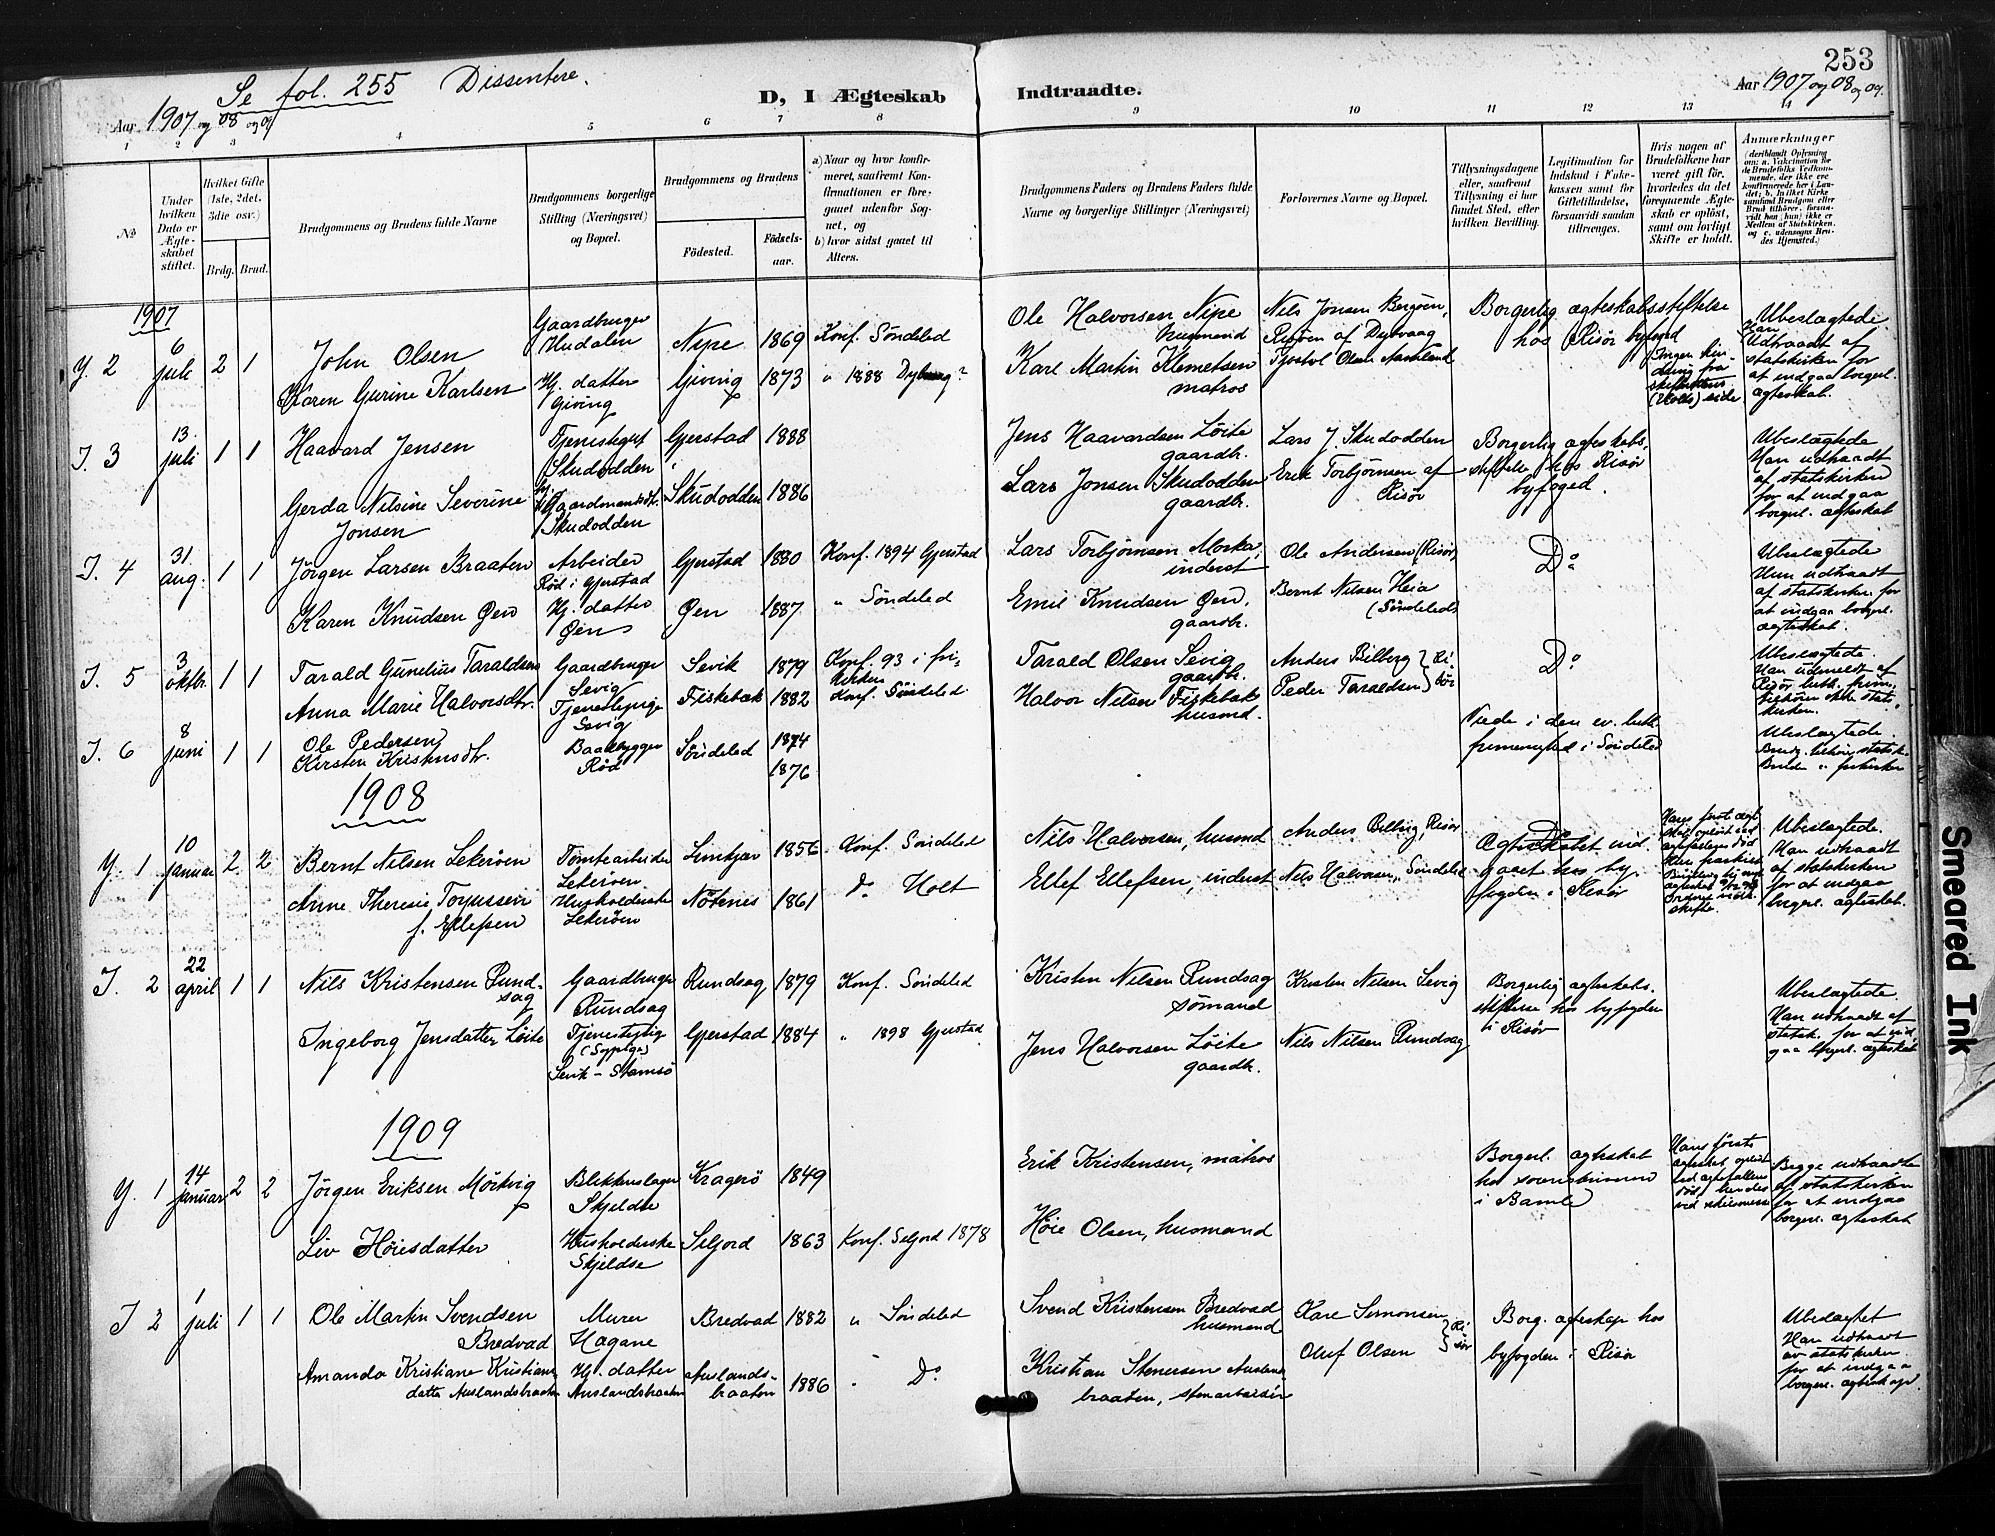 Se fol. 255 Dissentere.
253
Aar 1907 og 08 og 09
D, I Ægteskab Indtraadte.
Aar 1907 og 08 og 09.
1 2 3 4 5 6 7 8 9 10 11 12 13 14
No
Under hvilken Dato er Ægteskabet stiftet.
Hvilket Gifte (1ste, 2det, 3die osv.)
Brdg. Brud.
Brudgommens og Brudens fulde Navne
Brudgommens borgerlige Stilling (Næringsvei) og Bopæl.
Brudgommens og Brudens
Fødested.
Fødselsaar.
a) Naar og hvor konfirmeret, saafremt Konfirmationen er foregaaet udenfor Sognet, og
b) hvor sidst gaaet til Alters.
Brudgommens Faders og Brudens Faders fulde Navne og borgerlige Stillinger (Næringsvei)
Forlovernes Navne og Bopæl.
Tillysningsdagene eller, saafremt Tillysning ei har fundet Sted, efter hvilken Bevilling.
Legitimation for Indskud i Enkekassen samt for Giftetilladelse, forsaavidt saadan tiltrænges.
Hvis nogen af Brudefolkene har været gift før, hvorledes da det foregaaende Ægteskab er opløst, samt om lovligt Skifte er holdt.
Anmærkninger
(deriblandt Oplysning om: a. Vakcination for de Brudefolks Vedkommende, der ikke ere konfirmerede her i Landet; b. hvilket Kirkesamfund Brudgom eller Brud tilhører, forsaavidt han (hun) ikke er Medlem af Statskirken, og c. udensogns Brudes Hjemsted.)
1907
Y. 2 6 juli 2 1 John Olsen Gaardbruger Hudalen Nipe 1869 Konf. Söndeled Ole Halvorsen Nipe husmand Nils Jonsen Bergöen, Borgerlig ægteskabsstiftelse hos Risør byfoged Ubeslægtede Han Udtraadt af statskirken for at indgaa borgerl. ægteskab.
Karen Gurine Karlsen Hj. datter Giving Giving 1873 " 1888 Karl Martin Klemetsen matros
I. 3 13. juli 1 1 Haavard Jensen Tjenestegut Skudodden Gjerstad 1888 Jens Haavardsen Löite gaardb. Lars J. Skudodden Borgerlig ægteskabsstiftelse hos Risör byfoged. Ubeslægtede Han udtraadt af statskirken for at indgaa borgerl. ægteskab
Gerda Nilsine Severine Jonsen Skudodden Skudodden 1886 Lars Jonsen Skudodden gaardb. Erik Torbjørnsen af Risør
I. 4 31 aug. 1 1 Jörgen Larsen Braaten Arbeider Rød i Gjerstad Gjerstad 1880 Konf. 1894 Gjerstad Lars Torbjørnsen Moska, inderst Ole Andersen (Risør) Do Ubeslægtede Hun udtraadt af statskirken for at indgaa borgerl. ægteskab.
Karen Knudsen Øen Hj. datter Øen Øen 1887 " Söndeled Emil Knudsen Øen, gaardb. Bernt Nilsen Heia (Söndeled)
I. 5 3 oktbr. 1 1 Tarald Gunelius Taraldsen Gaardbruger Sevig Sevik 1879 Konf. 93 i frikirken Tarald Olsen Sevig gaardb. Anders Bilberg Do Ubeslægtede.
Anna Marie Halvorsdtr. Tjenestepige Sevig Fiskebæk 1882 Konf. Söndeled. Halvor Nilsen Fiskebæk husmd. Peder Taraldsen } Risör
I. 6 8 juni 1 1 Ole Pedersen Baadbygger Röd Söndeled 1874 Viede i den ev. luth. frimenighed i Söndeled Ubeslægtede.
Kirsten Kristensdtr. 1876
1908
Y. 1 10 januar 2 2 Bernt Nilsen Lekeröen Tomtearbeider Lekeröen 1856 Konf. Söndeled Nils Halvorsen, husmd Anders Bilberg, Risör Ægteskabet indgaaet hos byfogden i Risör Ubeslægtede. Han udtraadt af statskirken for at indgaa borgerl. ægteskab.
Anne Theresie Torjussen f. Ellefsen Husholderske Lekeröen 1861 Do Holt Ellef Ellefsen, inderst Nils Halvorsen, Söndeled
I. 2 22 april 1 1 Nils Kristensen Rundsag Gaardbruger Rundsag Rundsag 1879 Konf. Söndeled Kristen Nilsen Rundsag sömand Kristen Nilsen Sevig Borgerlig ægteskabsstiftelse hos byfogden i Risör Ubeslægtede. Han udtraadt af statsk. for at indgaa borgerl. ægteskab
Ingeborg Jensdatter Löite Tjenestepige Gjerstad 1884 " 1898 Gjerstad Jens Halvorsen Löite gaardb. Nils Nilsen Rundsag
1909
Y. 1 14 januar 2 2 Jörgen Eriksen Mörkvig Blikkenslager Skjeldsø Kragerö 1849 Erik Kristensen, matros Borgerl. ægteskab hos sorenskriveren i Bamle Begge udtraadte af statskirken for at indgaa borgerl. ægteskab
Liv Höiesdatter Husholderske Skjeldsø Seljord 1863 Konf. Seljord 1878 Höie Olsen, husmand
I 2 1 juli 1 1 Ole Martin Svendsen Bredvad Murer Hagane Bredvad 1882 " Söndeled Svend Kristensen Bredvad husmand Kare Simonsen Borg. ægteskap hos byfogden i Risör Ubeslægtet Han udtraadt av statskirken for at indgaa borgerl. ægteskap.
Amanda Kristiane Kristiansdatter Auslandsbraaten Hj. datter Auslandsbraaten Auslandsbraaten 1886 " Do Kristian Stenersen Auslandsbraaten, stenarbeider Oluf Olsen } Risör
Smeared Ink